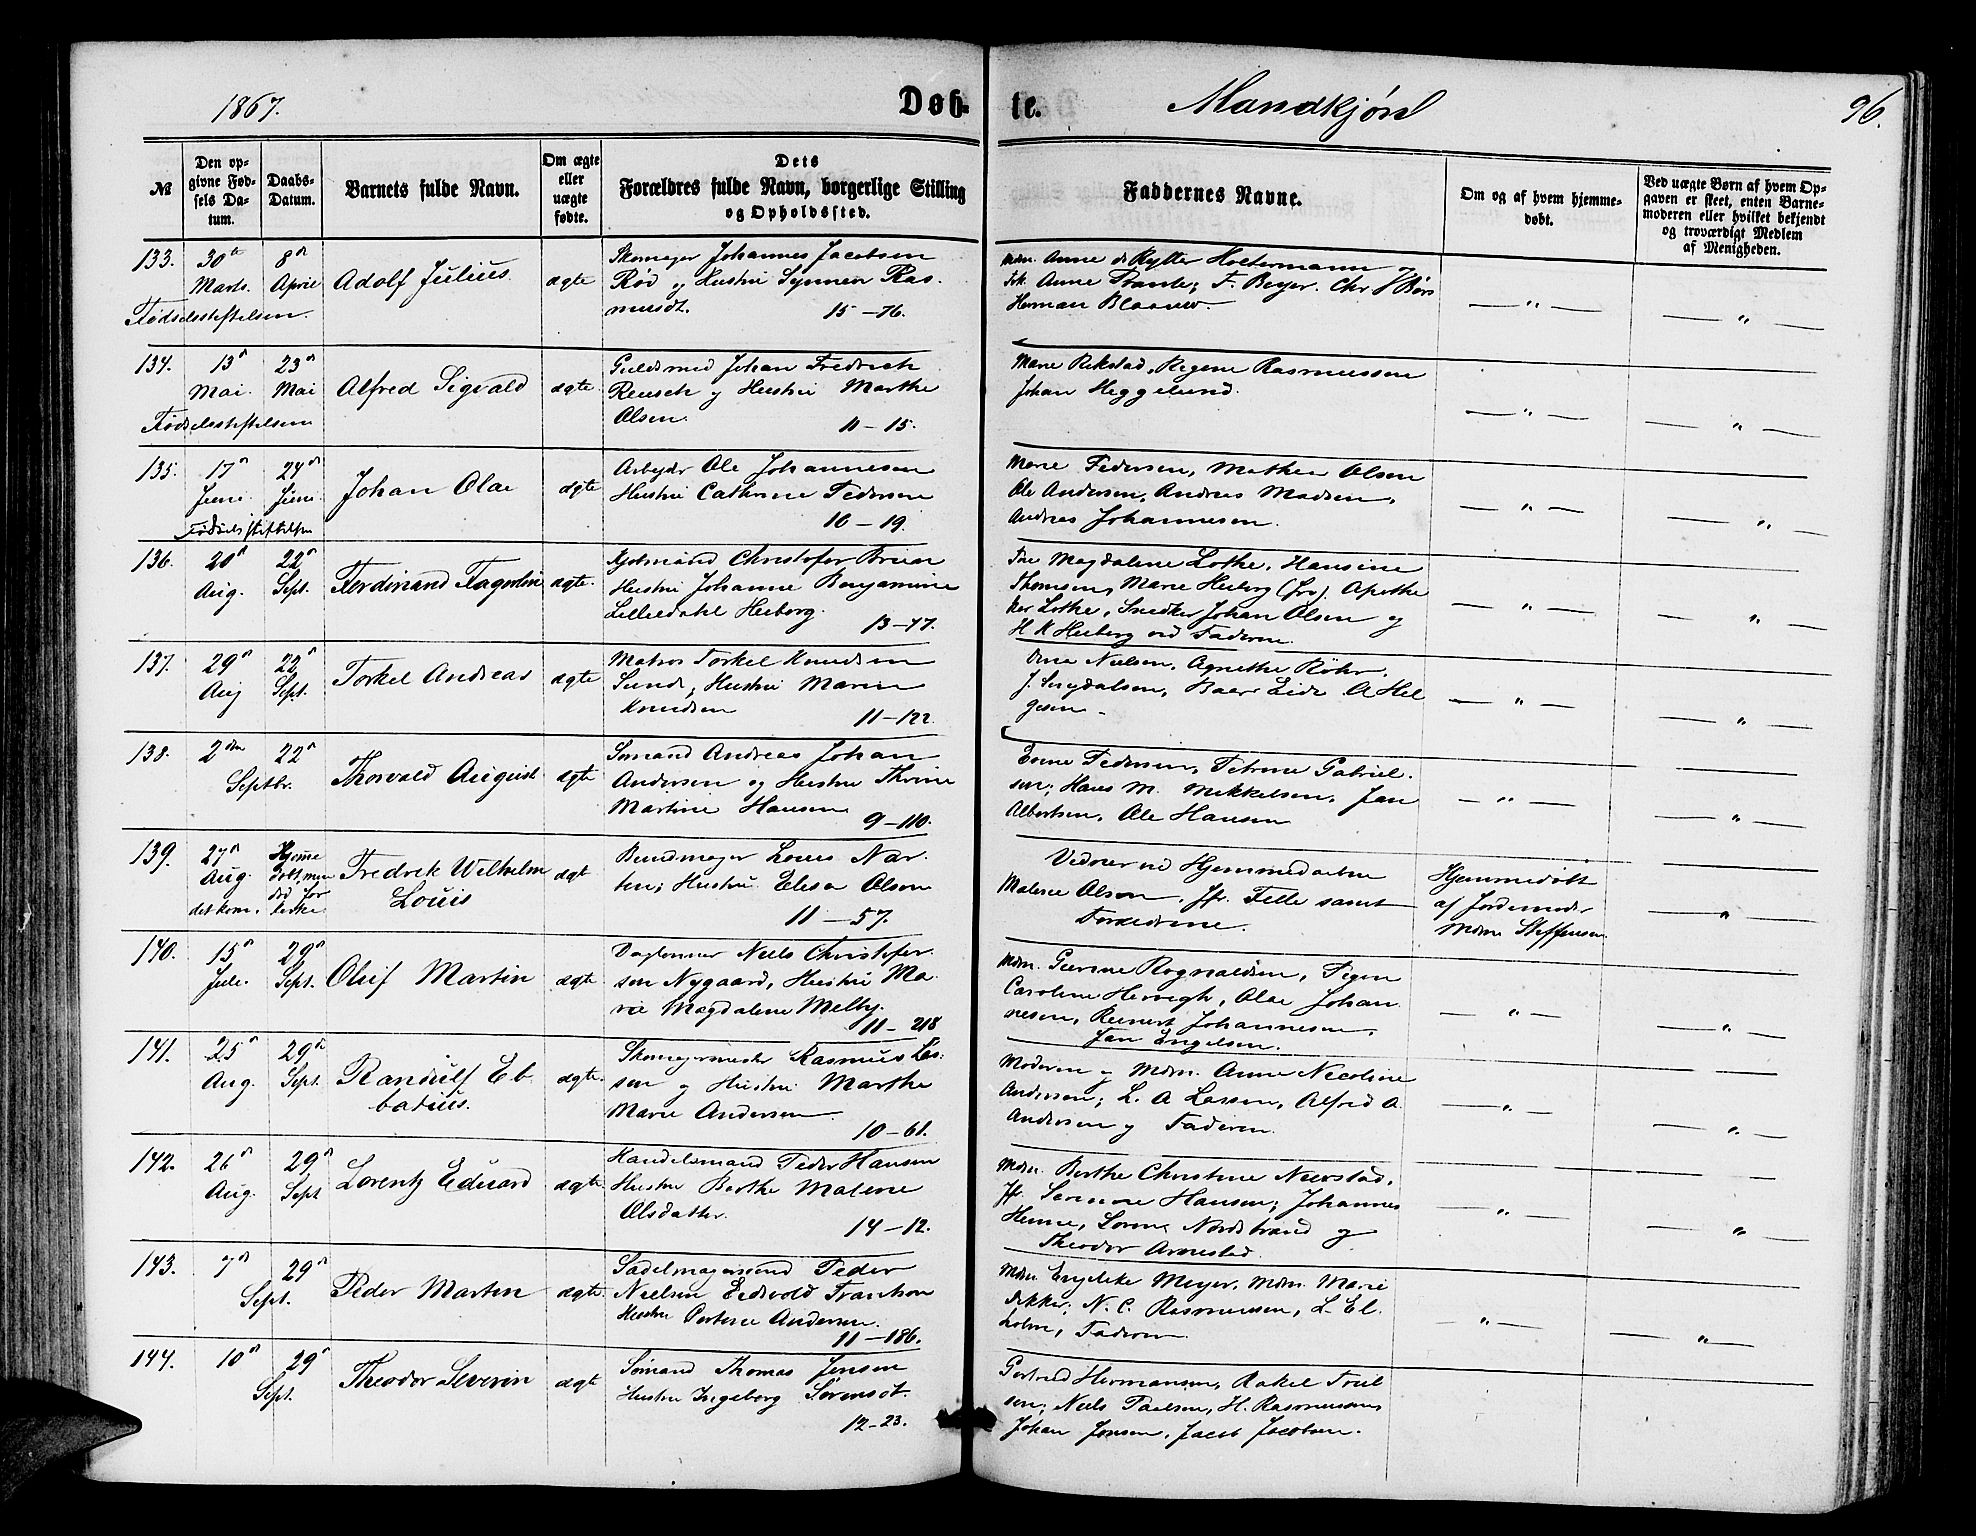 1867.
Døb-
te.
Mandkjøn
96.
№
Den op-
givne Fød-
sels Da-
tum.
Daabs-
Datum.
Barnets fulde Navn.
Om ægte
eller
uægte
fødte.
Dets
Forældres fulde Navn, borgerlige Stilling
og Opholdssted.
Faddernes Navne.
Om og af hvem hjemme-
døbt.
Ved uægte Børn af hvem Op-
gaven er skeet, enten Barne-
moderen eller hvilket bekjendt
og troværdigt Medlem
af Menigheden.
133.
30te
Marts.
8de
April
Fødselsstiftelsen.
Adolf Julius.
ægte
Skomager Johannes Jacobsen
Rød og Hustru Synneve Ras-
musdt.
15-76.
Mdm. Anne de Rytter Holtermann
Frk. Anne Frante; F. Beyer. Chr
Herman Blaauw.
134.
13de
Mai.
23de
Mai
Fødselsstiftelsen
Alfred Sigvald
ægte
Guldsmed Johan Fredrich
Reusch og Hustru Marthe
Olsen.
11-15.
Marie Rikstad, Regine Rasmussen
Johan Heggelund.
135.
17de
Juni.
24de
Juni.
Fødselsstiftelsen
Johan Olai
ægte
Arbeidr Ole Johannesen
Hustru Cathrine Pedersen
10-19.
Marie Pedersen, Mathea Olsen
Ole Andersen, Andreas Madsen,
Andreas Johannesen.
136.
20de
Aug.
22de
Sept.
Ferdinand Fagerlin
ægte.
Kjøbmand Christofer Bruun
Hustru Johanne Benjamine
Lilliedahl Heiberg.
13-77.
Fru Magdalene Lothe, Hansine
Thomsen, Marie Heiberg (fru). Apothe
ker Lothe, Snedker Johan Olsen og
H. K Heiberg ved Faderen.
137.
29de
Aug
22de
Sept.
Torkel Andreas
ægte
Matros Torkel Knudsen
Sund, Hustru Maren
Knudsen
11-122.
Nielsen, Agnethe Röhr,
Baar Eide A Hel
gesen-
138.
2den
22de
Septbr.
Thorvald August
ægte
Sømand Andreas Johan
Andersen og Hustru Thrine
Martine Hansen
9-110.
Pedersen, Petrine Gabriel.
sen; Hans M. Mikkelsen, Jan
Albertsen, Ole Hansen
139.
27de
Aug.
det kom.
Hjemme
døbt, men
død før
Kirke
Fredrik Wilhelm
Louis
ægt
Bundtmager Louis Nar-
ten; Hustru Elisa Olsen
11-57.
Vidner ved Hjemmedaaben
Malene Olsen, Jfr. Felle samt
Forældrene.
Hjemmedøbt
af Jordemoder
Mdme Steffensen.
140.
15de
Juli.
29de
Sept.
Oluf Martin
ægte
Daglønner Niels Christofer-
sen Nygaard, Hustru Ma-
rie Magdalene Melby.
11-218
Mdm. Gurine Rognaldsen, Pigen
Caroline Herwegh, Olai Johan
nesen, Reinert Johannesen,
Jan Engelsen.
141.
25de
Aug.
29de
Sept.
Randulf Eb
batius.
ægte.
Skomagermester Rasmus Las-
sen og Hustru Marthe
Marie Andersen
10-61.
Moderen og Mdm. Anne Nicoline
Andersen; L. A Lassen, Alfred A.
Andersen og Faderen.
142.
26de
Aug.
29de
Sept
Lorentz Eduard
ægte
Handelsmand Peder Hansen
Hustru Berthe Malene
Olsdatter.
14-12.
Mdm. Berthe Christine Nierstad,
Jfr. Hansen; Johannes
Nordstrand og
Theodor Arnestad.
143.
7de
29de
Sept.
Peder Martin
ægte
Sadelmagersvend Peder
Nielsen Eidsvold
Hustru Andersen.
11-186.
Mdm. Engelcke Meyer, Mdm. Marie
Dekker; N. C. Rasmussen, L. El
holm, Faderen
144.
10de
29de
Sept.
Theodor Severin
ægte
Sømand Thomas Jensen
Hustru Ingeborg Sørensdt.
12-23.
Gertrud Hermansen, Rakel Poul
sen; Niels Paulsen, H. Rasmussen,
Johan Jonsen, Jacob Jacobsen.